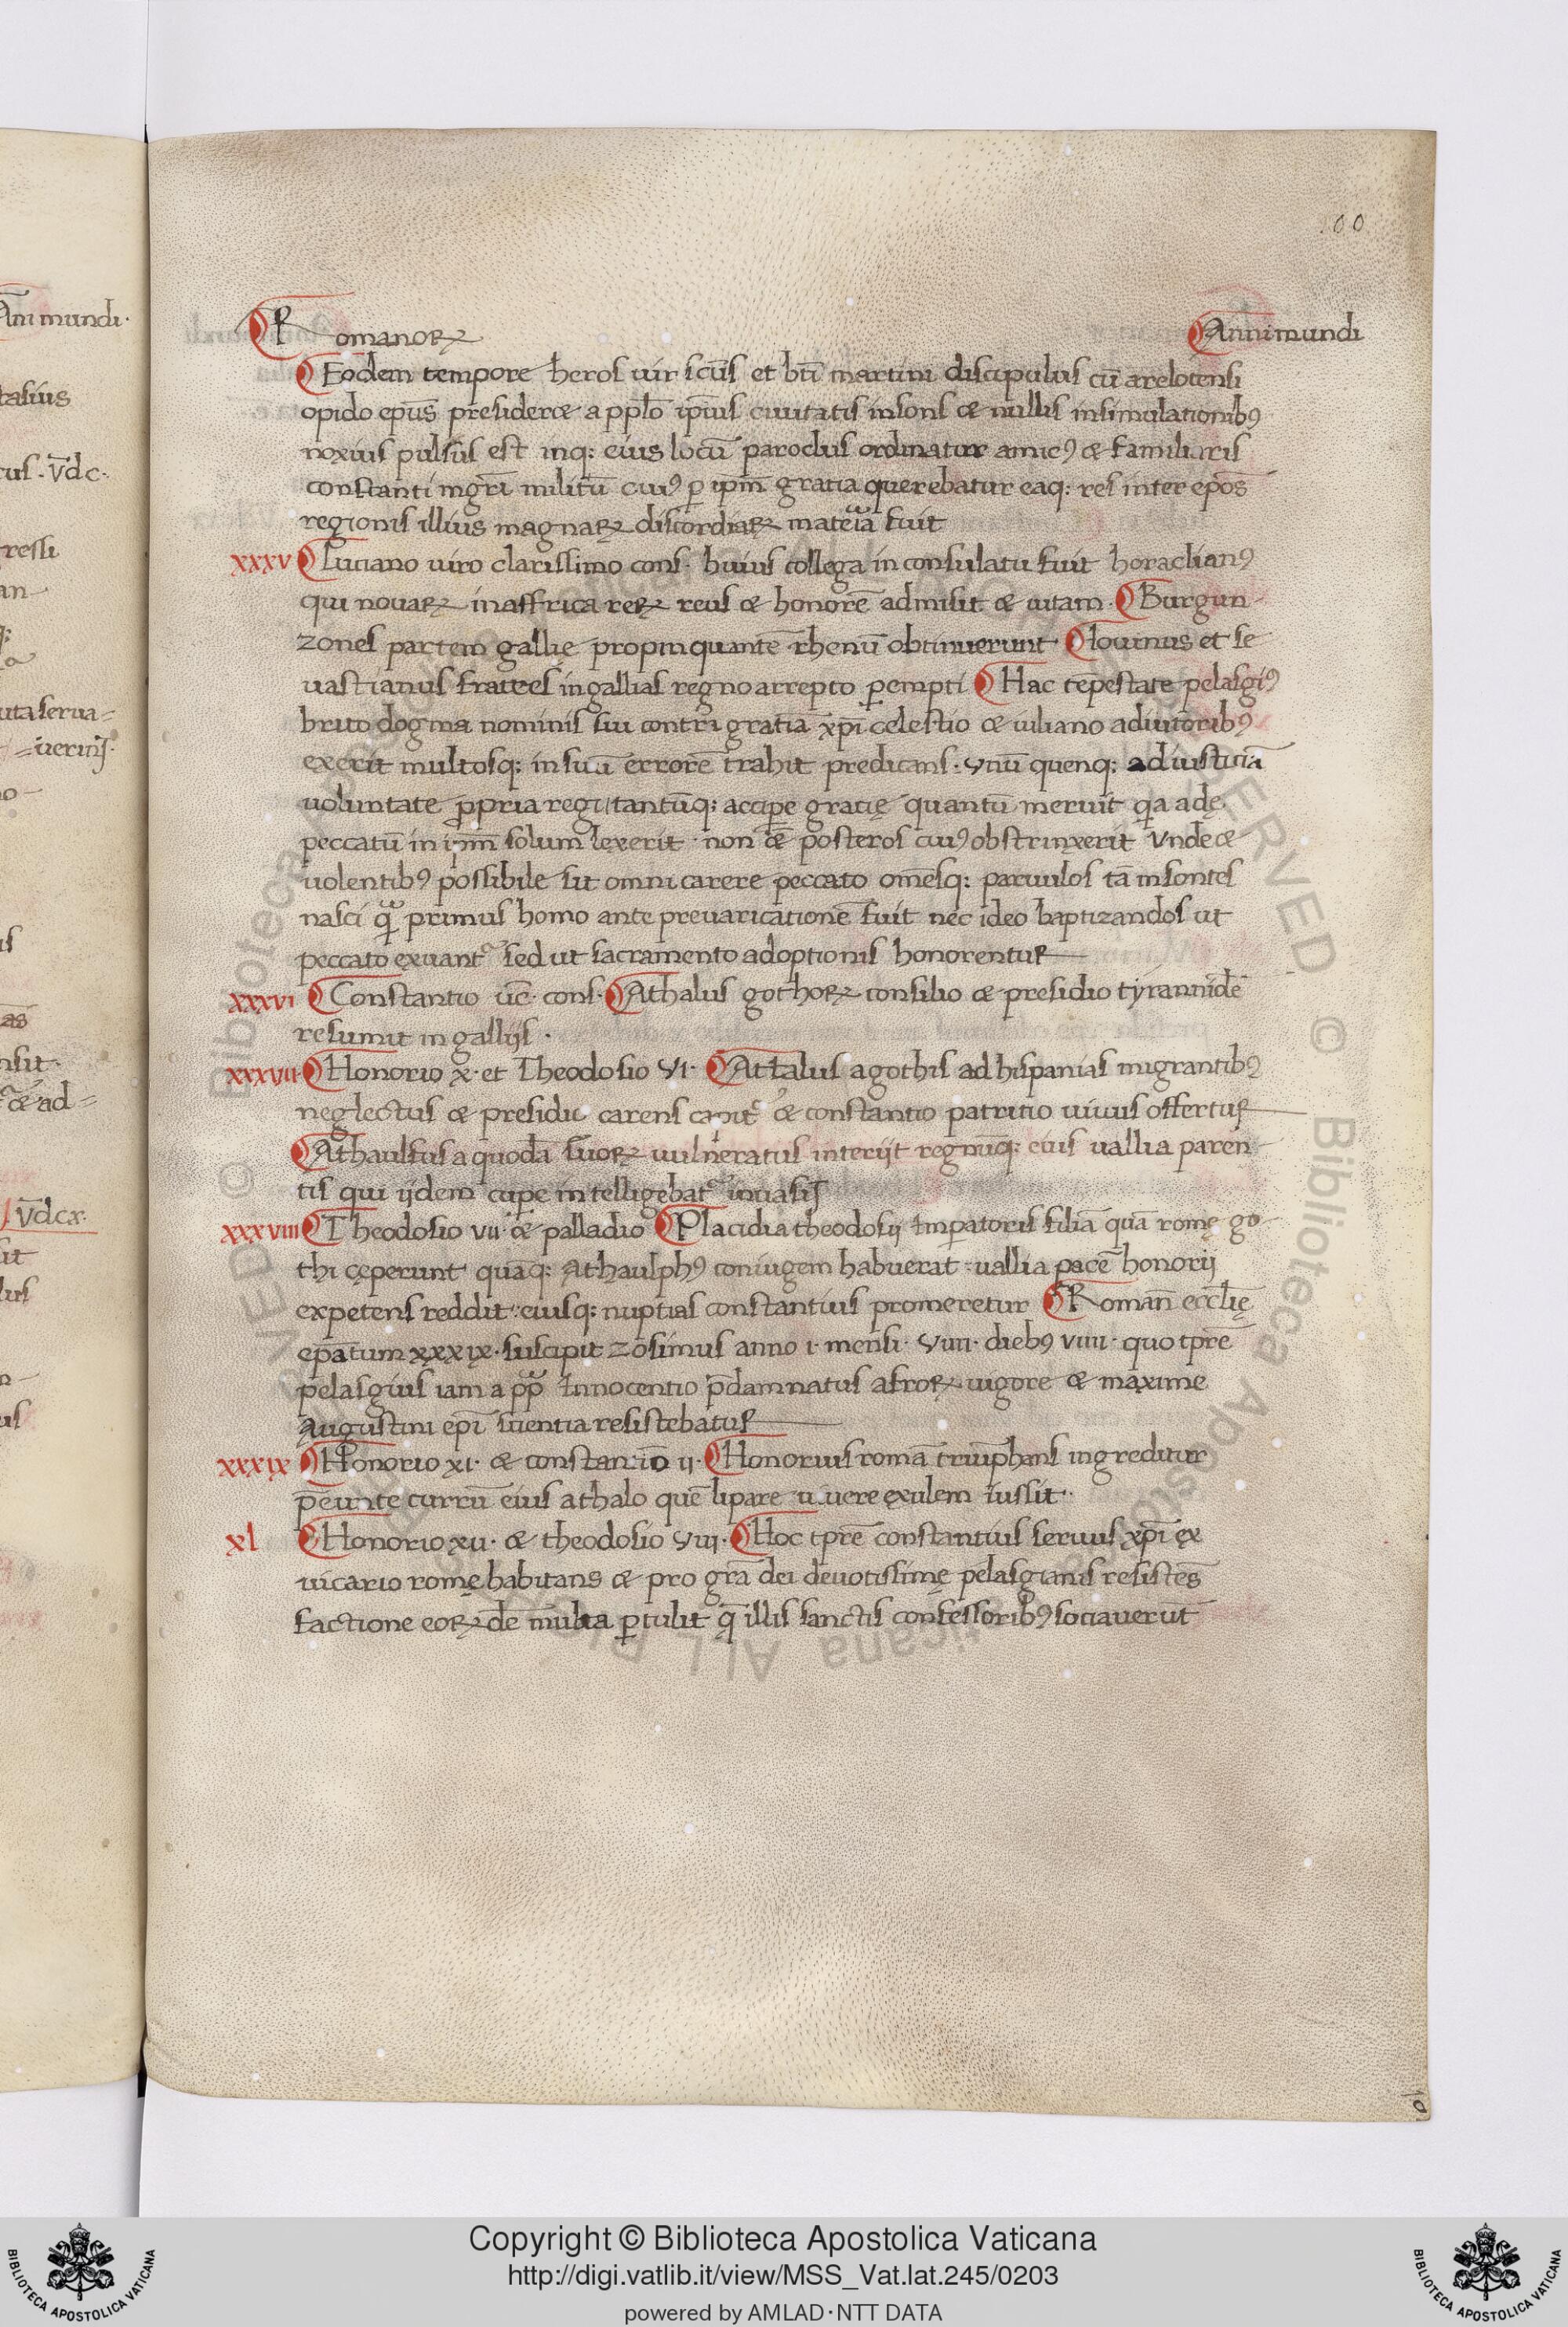 100
Romanorꝝ Anni mundi
Eodem tempore heros uir sc̄us et bt̄i martini discipulus cū arelotensi
opido ep̄us presideræ a pplo ip̄ius ciuitatis insons æ nullis insimulationibꝰ
noxius pulsus est inq: eius locū paroclus ordinatur amicꝰ æ familiaris
constanti mgr̄i militū cuiꝰ ꝑ ip̄m gratia querebatur eaq: res inter ep̄os
regionis illius magnaꝝ discordiaꝝ materia fuit
xxxv Luciano uiro clarissimo cons· huius collega in consulatu fuit horaclianꝰ
qui nouaꝝ in affrica reꝝ reus æ honorē admisit æ uitam· Burgun-
zones partem gallie propinquantē rhenū obtinuerunt Iouinus et se
uastianus fratres in gallias regno arrepto ꝑempti Hac tēpestate pelasgiꝰ
bruto dogma nominis sui contra gratiā xp̄i celestio æ iuliano adiutoribꝰ
exerit multosq: in suū errorē trahit predicans· vnū quenq: ad iusticiā
uoluntate ꝓpria regi tantūq: accipe gracię quantū meruit qa adę
peccatū in ip̄m solum lexerit· non ēē posteros cuiꝰ obstrinxerit vnde æ
uolentibꝰ possibile sit omni carere peccato omēsq: paruulos tā insontes
nasci q̄ primus homo ante preuaricationē fuit nec ideo baptizandos ut
peccato exuant᷑ sed ut sacramento adoptionis honorentur
xxxvi Constantio uc̄· cons· Athalus gothoꝝ consilio æ presidio tyrannidē
resumit in gallijs·
xxxvii Honorio x· et Theodosio vi· Attalus a gothis ad hispanias migrantibꝰ
neglectus æ presidii carens capit᷑ æ constantio patritio uiuus offertur
Athaulfus a quodā suoꝝ uulneratus interijt regnūq: eius uallia paren-
tis qui ijdem cupe intelligebat᷑ inuasis
xxxviii Theodosio vii· æ palladio Placidia theodosij Imꝑatoris filiā quā romę go-
thi cęperunt quāq: Athaulphꝰ coniugem habuerat· uallia pacē honorij
expetens reddit· eiusq: nuptias constantius promeretur Roman̄ eccl̄ię
ep̄atum xxxix· suscipit zosimus anno i· mensi· viiii· diebꝰ viiii· quo tp̄re
pelasgius iam a pp̄ Innocentio p̄damnatus afroꝝ uigore æ maxime
Augustini ep̄i scientia resistebatur
xxxix Honorio xi· æ constantio ij· Honorius romā triūphans ingreditur
p̄eunte currū eius athalo quē lipare uiuere exulem iussit·
xl Honorio xii· æ theodosio viij· Hoc tp̄re constantius seruus xp̄i ex
uicario romę habitans æ pro gr̄a dei deuotissimę pelasgianis resistēs
factione eoꝝde multa ꝑtulit q̄ illis sanctis confessoribꝰ sociauerūt
Copyright © Biblioteca Apostolica Vaticana
http://digi.vatlib.it/view/MSS_Vat.lat.245/0203
powered by AMLAD·NTT DATA
BIBLIOTECA APOSTOLICA VATICANA
BIBLIOTECA APOSTOLICA VATICANA